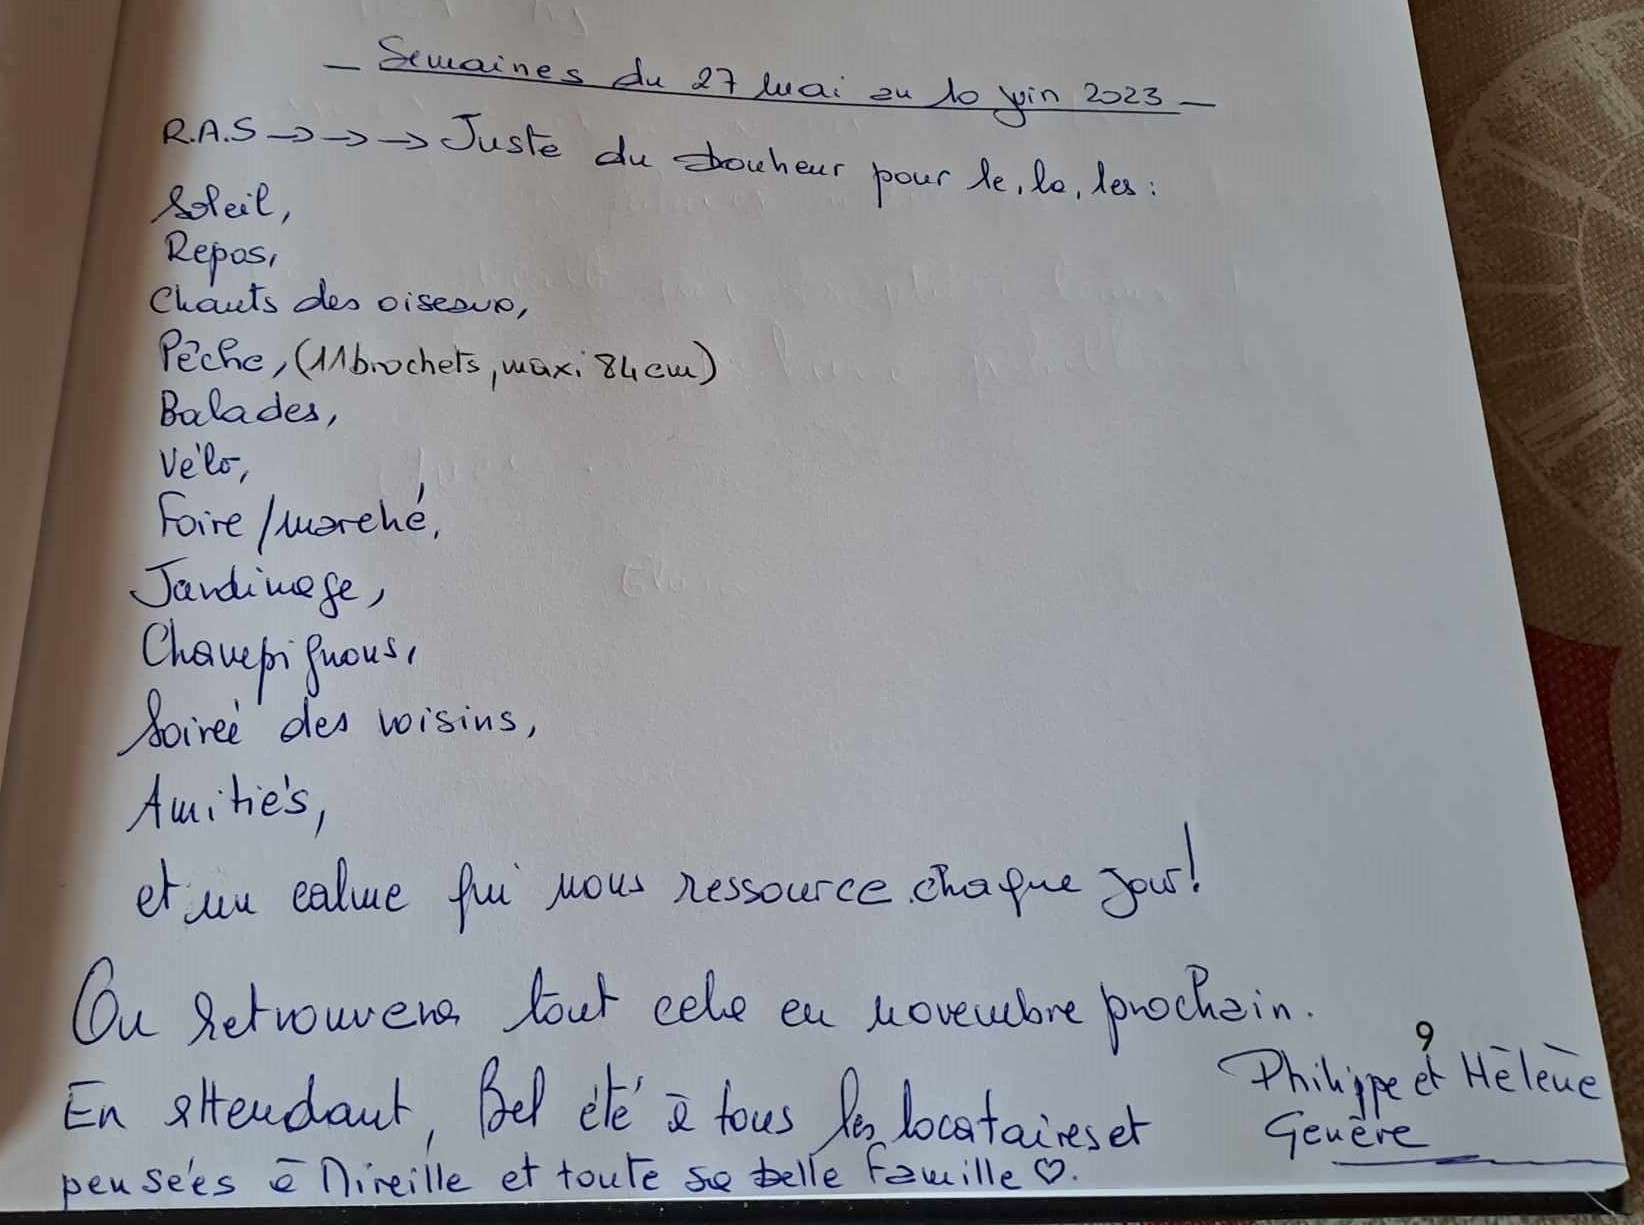 - Semaines du 27 mai au 10 juin 2023 -
R.A.S → → → Juste du bonheur pour le, la, les :
Soleil,
Repos,
Chants des oiseaux,
Pêche, (11 brochets, maxi 84 cm)
Balades,
Vélo,
Foire / marché,
Jardinage,
Champignons,
Soirée des voisins,
Amitiés,
et un calme qui nous ressource chaque jour !
On retrouvera tout cela en novembre prochain.
En attendant, Bel été à tous les locataires et
pensées à Mireille et toute sa belle famille ♡.
9
Philippe et Hélène
Genève